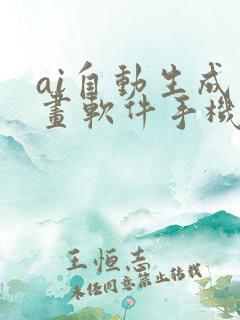 ai自動生成
畫軟件手機
王恒志
未经同意禁止转载